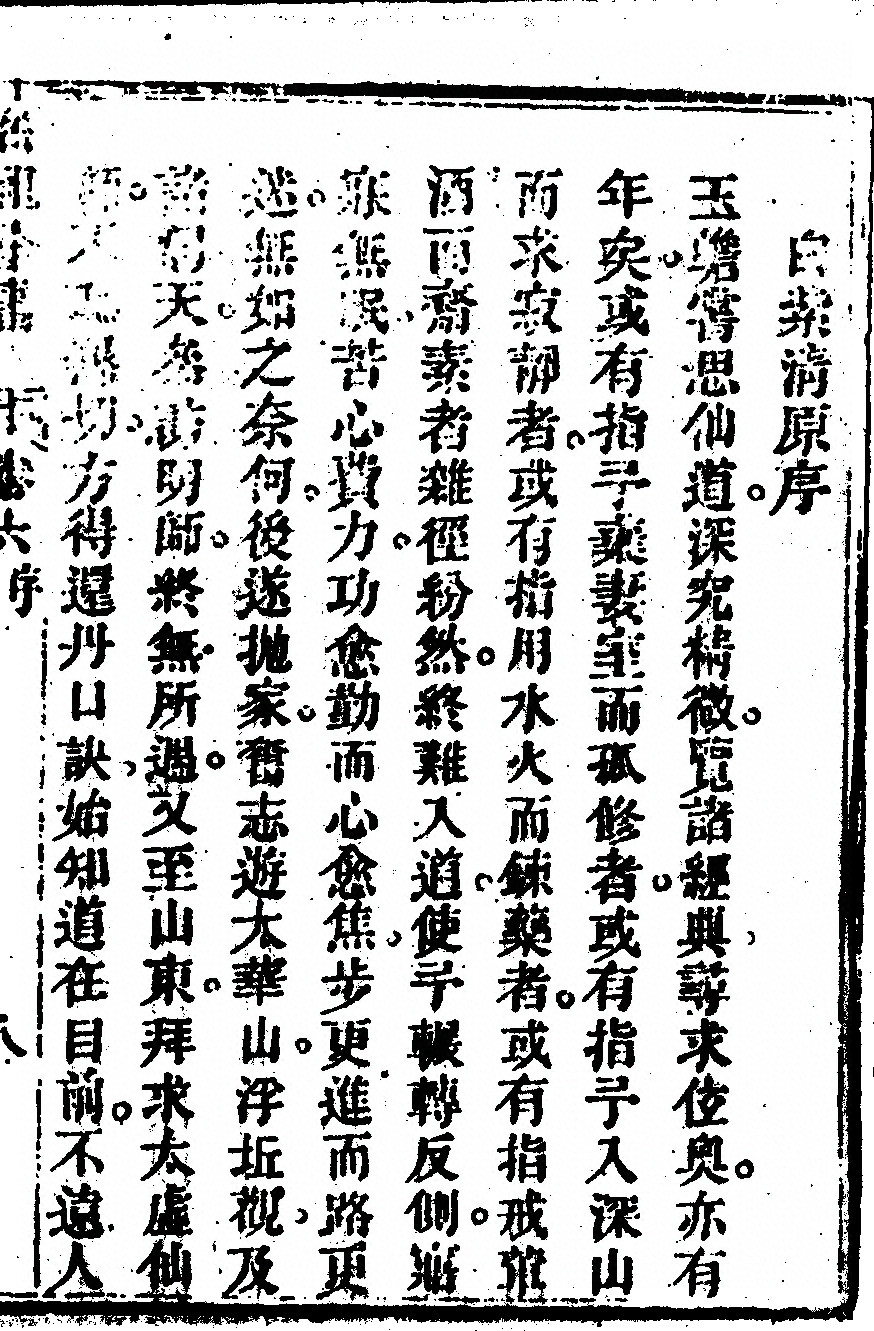 白紫清原序
玉蟾嘗思仙道深究精微覽諸經典尋求侸奧亦有
年矣或有指予棄妻室而孤修者或有指予入深山
而求寂靜者或有指用水火而鍊藥者或有指戒葷
酒而齋素者雜徑紛然終難入道使予輾轉反側寤
寐無眠苦心費力功愈勤而心愈焦步更進而路更
迷無如之奈何後遂拋家奮志遊太華山浮坵觀及
天台訪明師終無所遇又至山東拜求太虛仙
師切方得還丹口訣始知道在目前不遠人
卷六 序
八